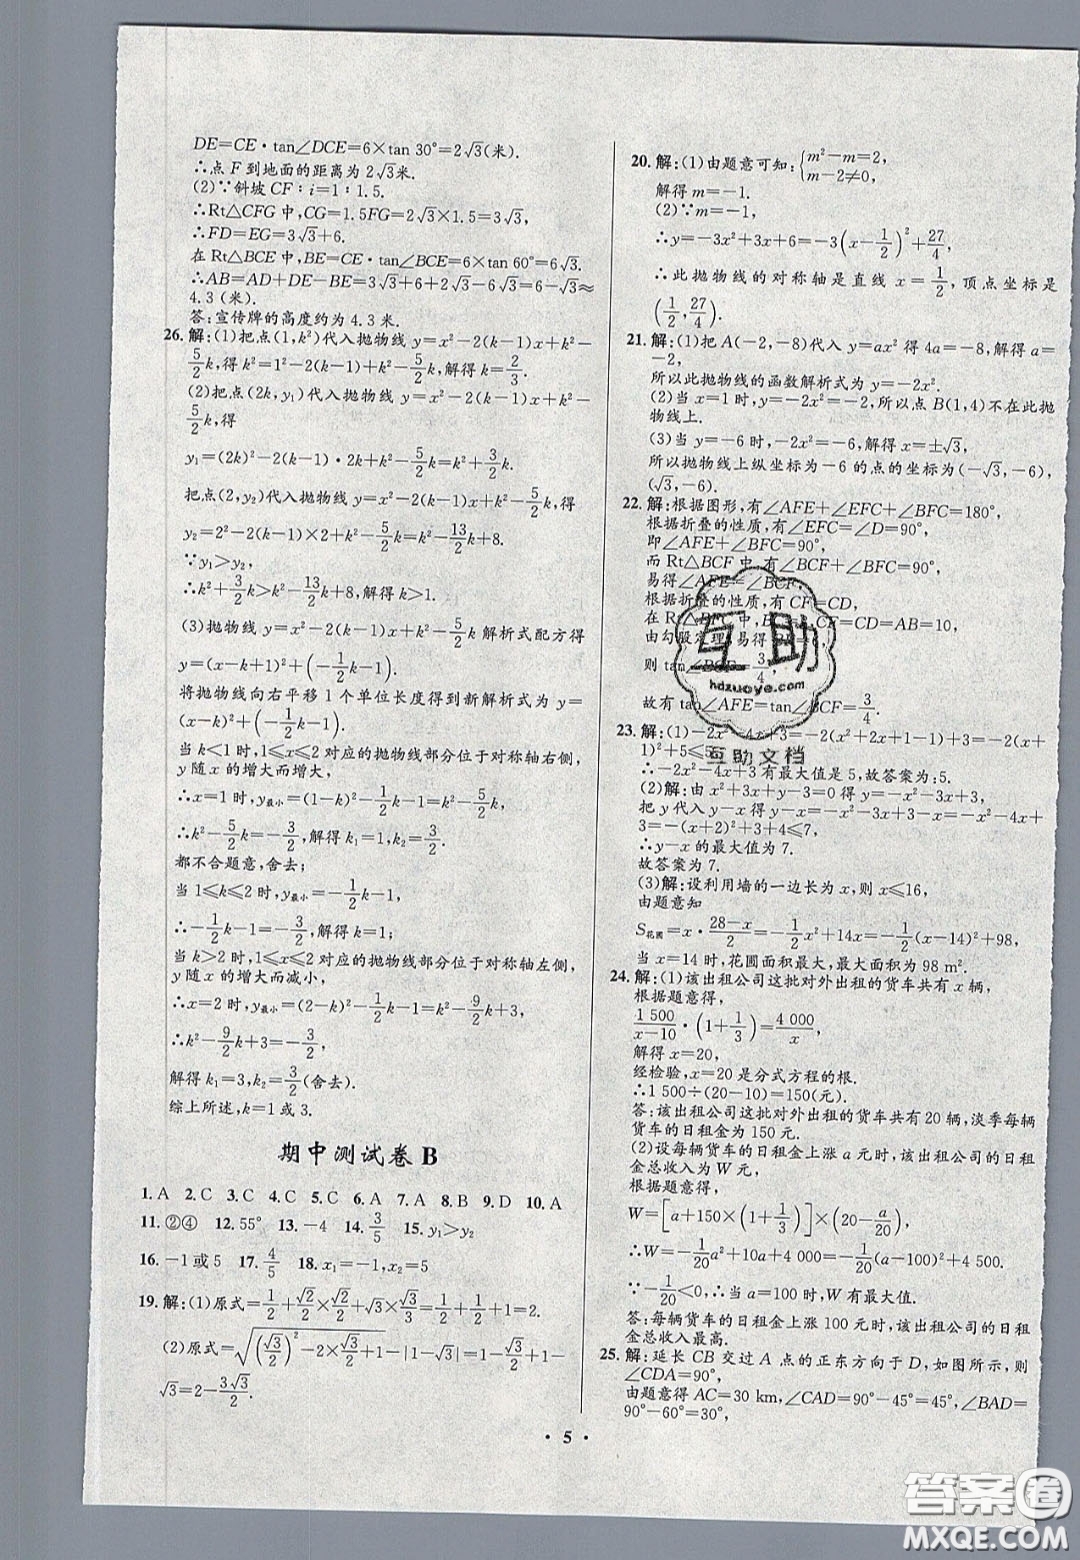 DE=CE·tan∠DCE=6×tan 30°=2√3(米).
∴点 F 到地面的距离为 2√3米.
(2)∵斜坡 CF∶i=1∶1.5.
∴Rt△CFG 中,CG=1.5FG=2√3×1.5=3√3,
∴FD=EG=3√3+6.
在 Rt△BCE 中,BE=CE·tan∠BCE=6×tan 60°=6√3.
∴AB=AD+DE-BE=3√3+6+2√3-6√3=6-√3≈
4.3(米).
答:宣传牌的高度约为 4.3 米.
26.解:(1)把点(1,k²)代入抛物线 y=x²-2(k-1)x+k²-
5/2k,得 k²=1²-2(k-1)+k²-5/2k,解得 k=2/3.
(2)把点(2k,y₁)代入抛物线 y=x²-2(k-1)x+k²-
5/2k,得
y₁=(2k)²-2(k-1)·2k+k²-5/2k=k²+3/2k.
把点(2,y₂)代入抛物线 y=x²-2(k-1)x+k²-5/2k,得
y₂=2²-2(k-1)×2+k²-5/2k=k²-13/2k+8.
∵y₁>y₂,
∴k²+3/2k>k²-13/2k+8,解得 k>1.
(3)抛物线 y=x²-2(k-1)x+k²-5/2k 解析式配方得
y=(x-k+1)²+(-1/2k-1).
将抛物线向右平移 1 个单位长度得到新解析式为 y=
(x-k)²+(-1/2k-1),
当 k<1 时,1≤x≤2 对应的抛物线部分位于对称轴右侧,
y 随 x 的增大而增大,
∴x=1 时,y最小=(1-k)²-1/2k-1=k²-5/2k,
∴k²-5/2k=-3/2,解得 k₁=1,k₂=3/2.
都不合题意,舍去;
当 1≤k≤2 时,y最小=-1/2k-1,
∴-1/2k-1=-3/2,解得 k=1;
当 k>2 时,1≤x≤2 对应的抛物线部分位于对称轴左侧,
y 随 x 的增大而减小,
∴x=2 时,y最小=(2-k)²-1/2k-1=k²-9/2k+3,
∴k²-9/2k+3=-3/2,
解得 k₁=3,k₂=3/2(舍去).
综上所述,k=1 或 3.
期中测试卷 B
1. A 2. C 3. C 4. C 5. C 6. A 7. A 8. B 9. D 10. A
11. ②④ 12. 55° 13. -4 14. 3/5 15. y₁>y₂
16. -1 或 5 17. 4/5 18. x₁=-1,x₂=5
19.解:(1)原式=1/2+√2/2×√2/2+√3×√3/3=1/2+1/2+1=2.
(2)原式=√((√3/2)²-2×√3/2+1)-|1-√3|=-√3/2+1+1-
√3=2-3√3/2.
20.解:(1)由题意可知:{m²-m=2,
m-2≠0,
解得 m=-1.
(2)∵m=-1,
∴y=-3x²+3x+6=-3(x-1/2)²+27/4
∴此抛物线的对称轴是直线 x=1/2,顶点坐标是
(1/2,27/4).
21.解:(1)把 A(-2,-8)代入 y=ax² 得 4a=-8,解得 a=
-2,
所以此抛物线的函数解析式为 y=-2x².
(2)当 x=1 时,y=-2x²=-2,所以点 B(1,4)不在此抛
物线上.
(3)当 y=-6 时,-2x²=-6,解得 x=±√3,
所以抛物线上纵坐标为-6 的点的坐标为(-√3,-6),
(√3,-6).
22.解:根据图形,有∠AFE+∠EFC+∠BFC=180°,
根据折叠的性质,有∠EFC=∠D=90°,
即∠AFE+∠BFC=90°,
而 Rt△BCF 中,有∠BCF+∠BFC=90°,
易得∠AFE=∠BCF,
根据折叠的性质,有 CF=CD,
在 Rt△BFC 中,BC=8,CF=CD=AB=10,
由勾股定理,易得 BF=6,
则 tan∠BCF=3/4,
故有 tan∠AFE=tan∠BCF=3/4.
23.解:(1)-2x²-4x+3=-2(x²+2x+1-1)+3=-2(x+
1)²+5≤5,
∴-2x²-4x+3 有最大值是 5,故答案为:5.
(2)解:由 x²+3x+y-3=0 得 y=-x²-3x+3,
把 y 代入 y-x 得 y-x=-x²-3x+3-x=-x²-4x+
3=-(x+2)²+3+4≤7,
∴y-x 的最大值为 7.
故答案为 7.
(3)解:设利用墙的一边长为 x,则 x≤16,
由题意知
S花圃=x·(28-x)/2=-1/2x²+14x=-1/2(x-14)²+98,
当 x=14 时,花圃面积最大,最大为 98 m².
24.解:(1)该出租公司这批对外出租的货车共有 x 辆,
根据题意得,
1 500/(x-10)·(1+1/3)=4 000/x,
解得 x=20,
经检验,x=20 是分式方程的根.
∴1 500÷(20-10)=150(元).
答:该出租公司这批对外出租的货车共有 20 辆,淡季每辆
货车的日租金为 150 元.
(2)设每辆货车的日租金上涨 a 元时,该出租公司的日租
金总收入为 W 元,
根据题意得,
W=[a+150×(1+1/3)]×(20-a/20),
∴W=-1/20a²+10a+4 000=-1/20(a-100)²+4 500.
∵-1/20<0,∴当 a=100 时,W 有最大值.
答:每辆货车的日租金上涨 100 元时,该出租公司的日租
金总收入最高.
25.解:延长 CB 交过 A 点的正东方向于 D,如图所示,则
∠CDA=90°,
由题意得 AC=30 km,∠CAD=90°-45°=45°,∠BAD=
90°-60°=30°,
· 5 ·
互助
hdzuoye.com
互助文档
答案卷
MXQE.COM